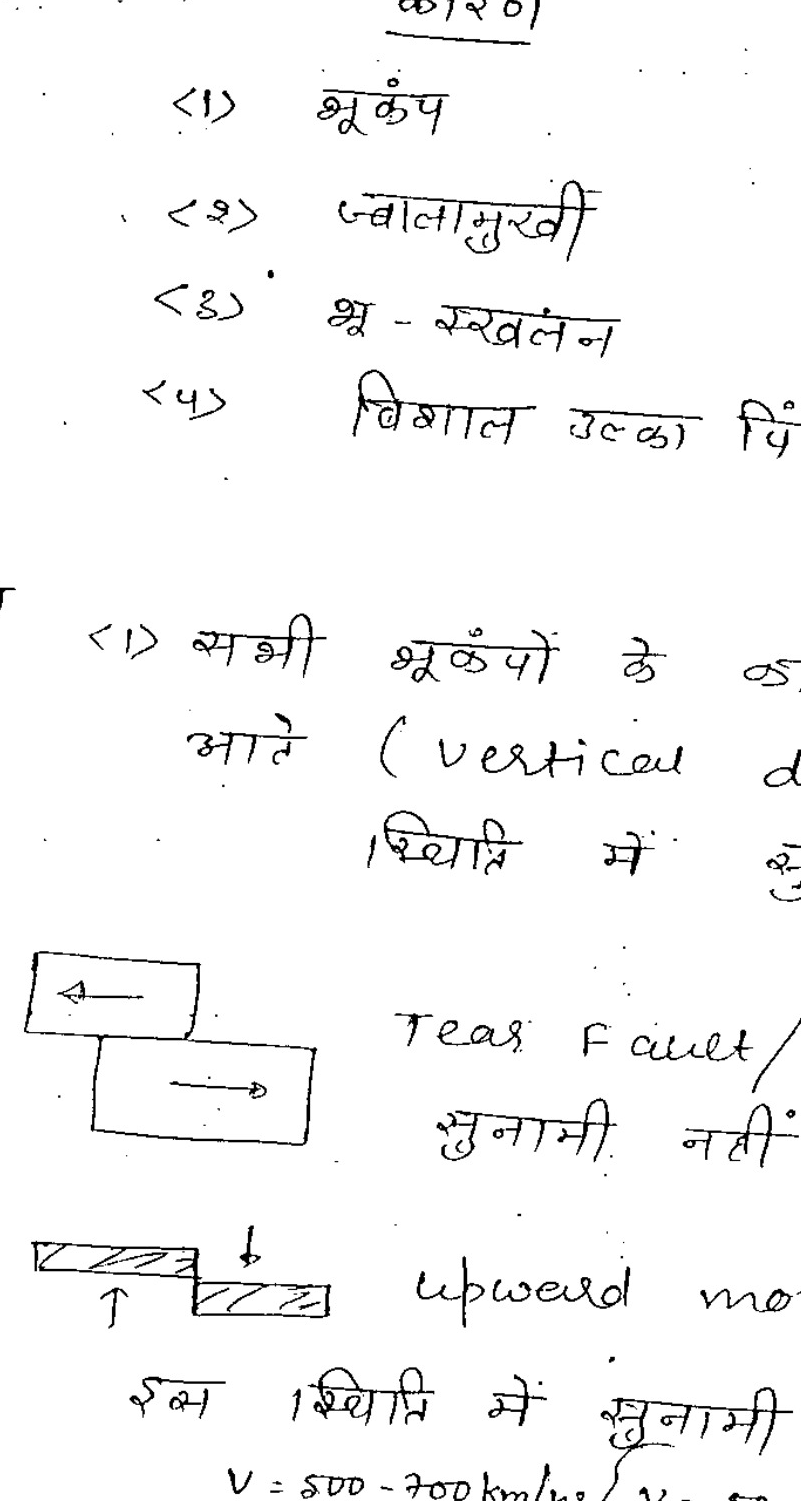 कारण
<1> भूकंप
<२> ज्वालामुखी
<3> भू - स्खलन
<4> विशाल उल्का पिं
<1> सभी भूकंपों के का
आते (vertical d
स्थिति में सु
Tear Fault/
सुनामी नहीं
upward mo
इस स्थिति में सुनामी
V = 500 - 700 km/